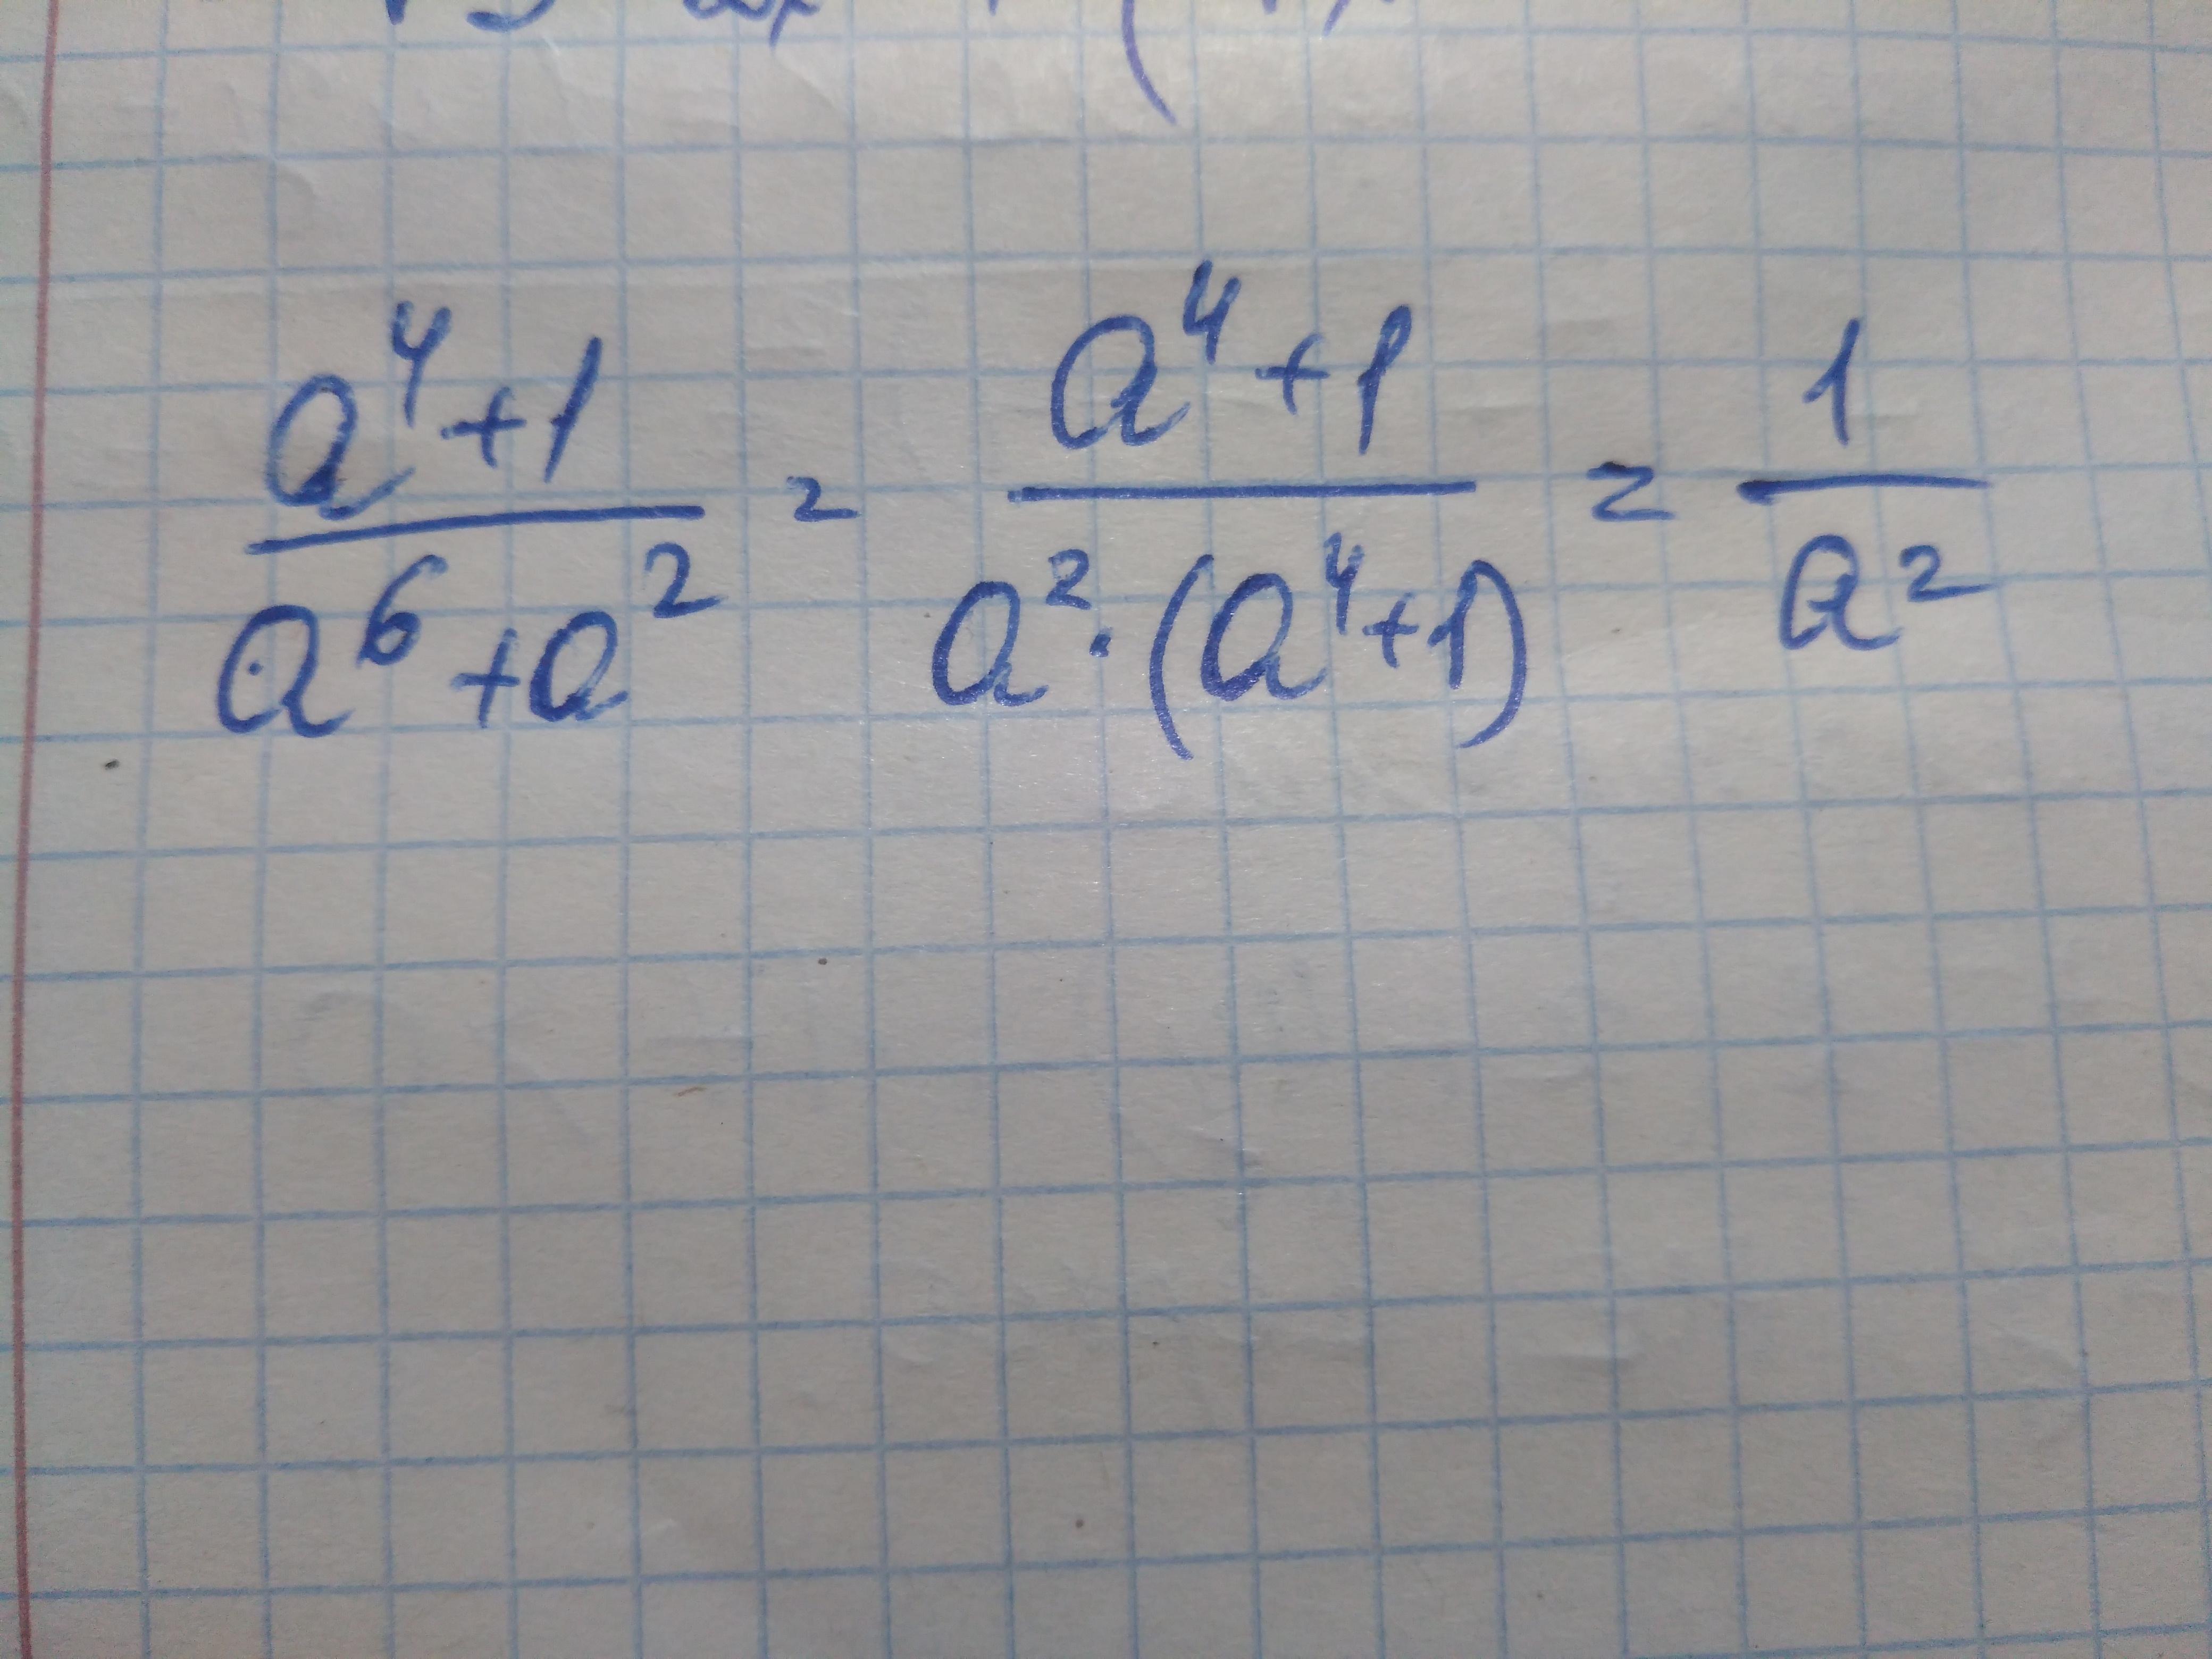 (a⁴+1)/(a⁶+a²) = (a⁴+1)/(a²·(a⁴+1)) = 1/a²